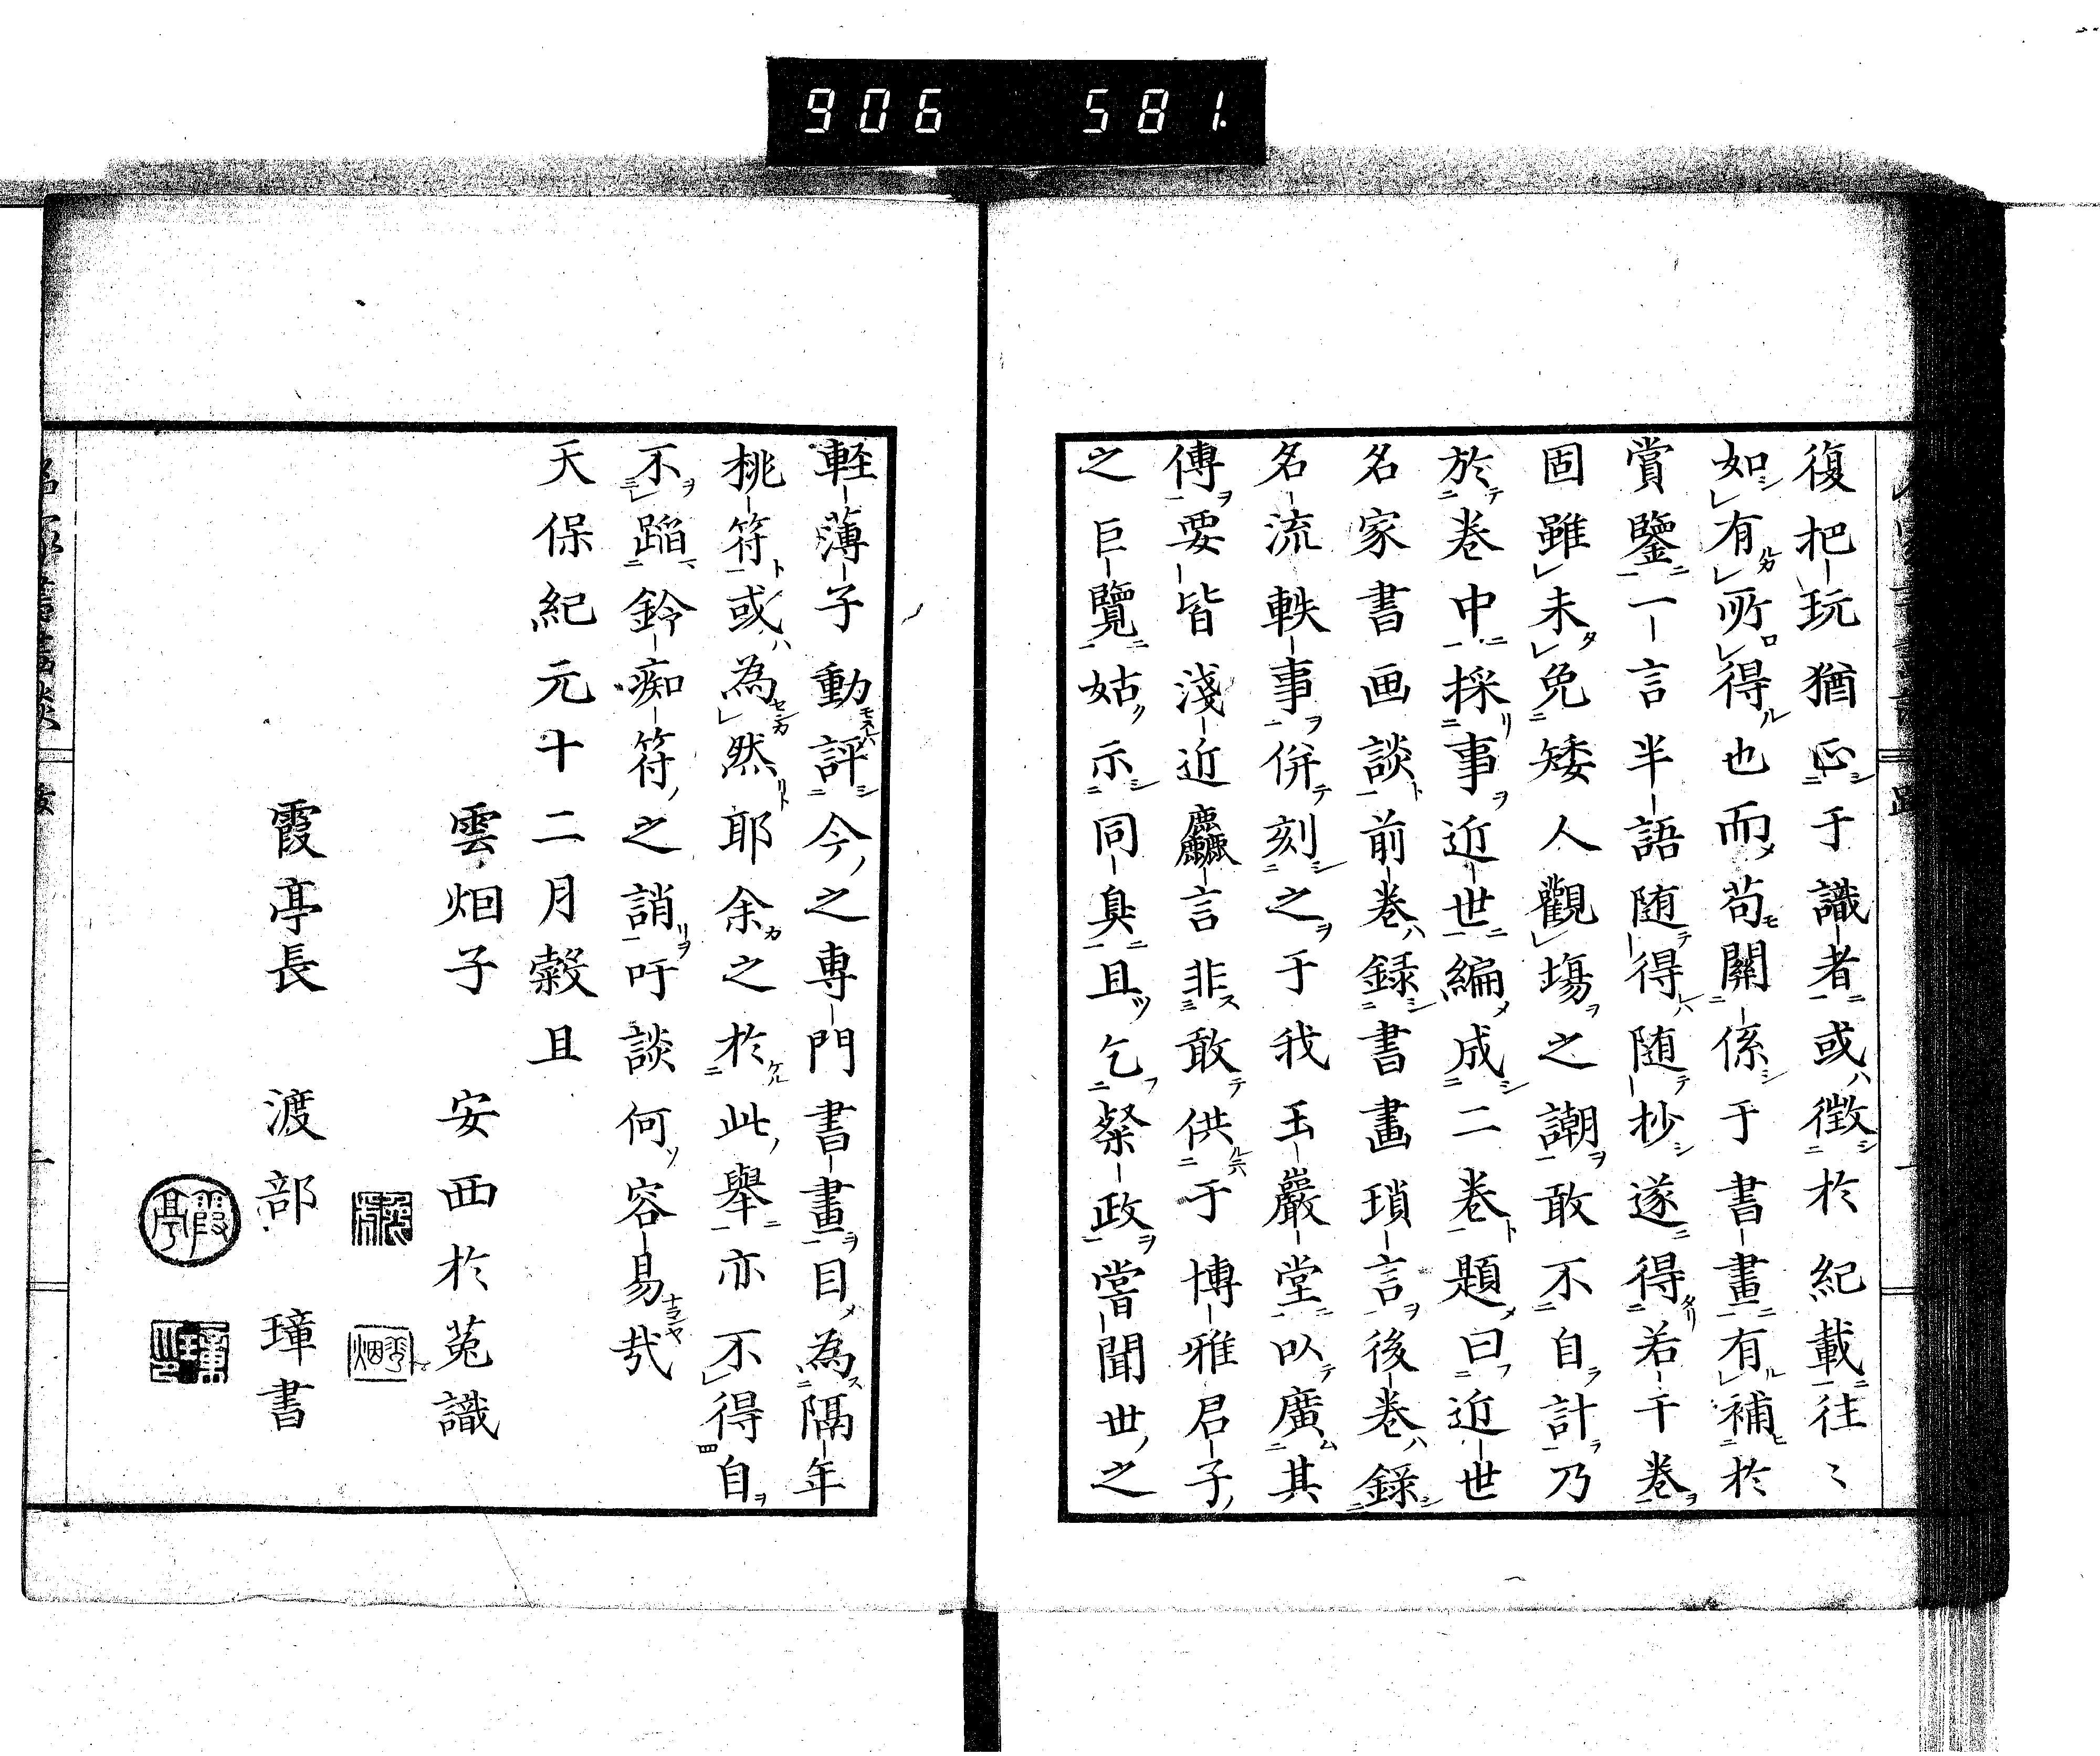 906 581
復把玩猶正于識者或徴於紀載往〻
如有所得也而苟關係于書畫有補於
賞鑒一言半語随得随抄遂得若干卷
固雖未免矮人觀場之謿敢不自計乃
於卷中採事近世編成二卷題曰近世
名家書画談前卷録書畫瑣言後卷録
名流軼事併刻之于我玉巖堂以廣其
傳要皆淺近麤言非敢供于博雅君子
之巨覽姑示同臭且乞粲政嘗聞世之
軽薄子動評今之専門書畫目為隔年
桃符或為然耶余之於此舉亦不得自
不蹈鈴痴符之誚吁談何容易哉
天保紀元十二月穀旦
雲烟子 安西於菟識
霞亭長 渡部璋書
霞亭